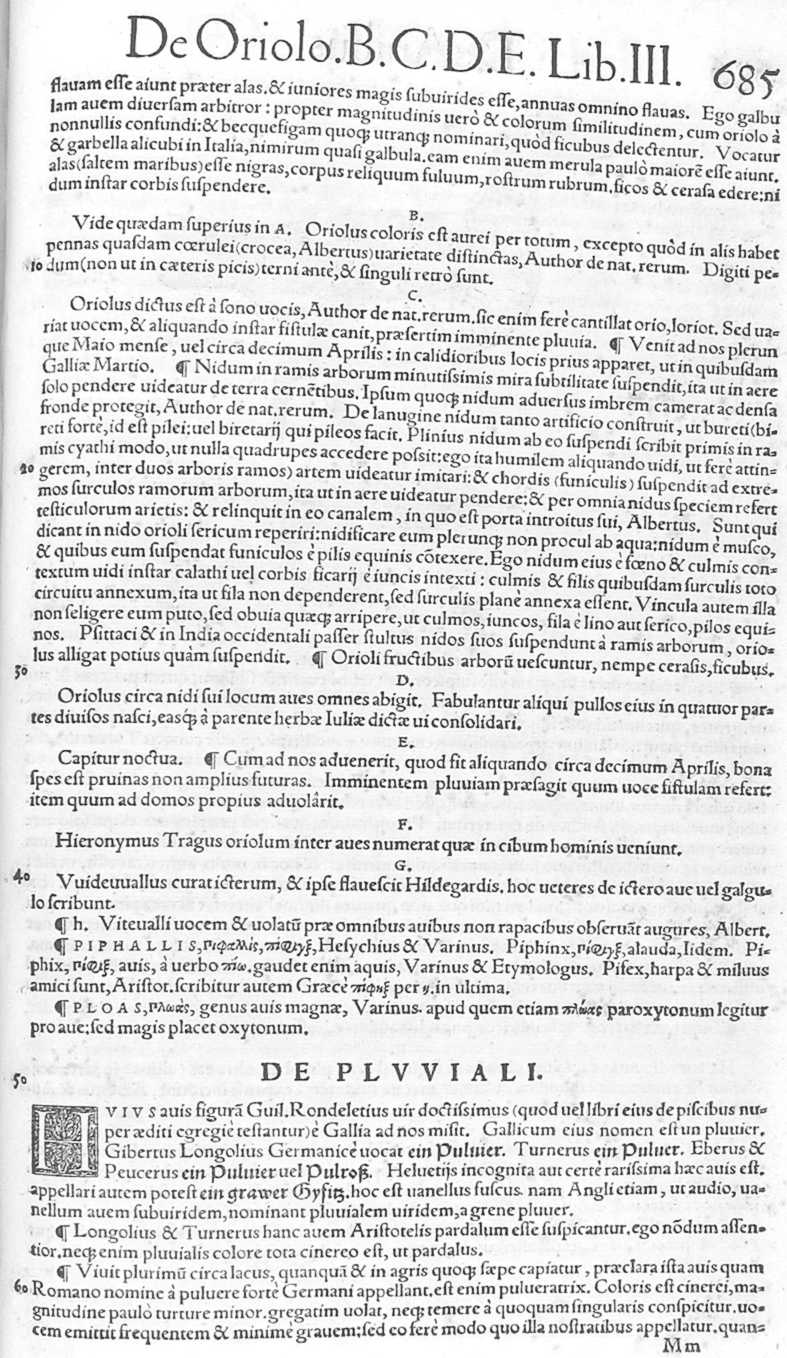 De Oriolo. B. C. D. E. Lib. III. 685
flauam esse aiunt præter alas. & iuniores magis subuirides esse, annuas omnino flauas. Ego galbu
lam auem diuersam arbitror: propter magnitudinis uerò & colorum similitudinem, cum oriolo à
nonnullis confundi: & becquefigam quoqꝫ utranqꝫ nominari, quòd ficubus delectentur. Vocatur
& garbella alicubi in Italia, nimirum quasi galbula. eam enim auem merula paulò maiorē esse aiunt.
alas (saltem maribus) esse nigras, corpus reliquum fuluum, rostrum rubrum. ficos & cerasa edere: ni
dum instar corbis suspendere.
B.
Vide quædam superius in A. Oriolus coloris est aurei per totum, excepto quòd in alis habet
pennas quasdam cœrulei (crocea, Albertus) uarietate distinctas, Author de nat. rerum. Digiti pe-
10 dum (non ut in cæteris picis) terni antè, & singuli retrò sunt.
C.
Oriolus dictus est à sono uocis, Author de nat. rerum. sic enim ferè cantillat orio, loriot. Sed ua-
riat uocem, & aliquando instar fistulæ canit, præsertim imminente pluuia. ¶ Venit ad nos plerun
que Maio mense, uel circa decimum Aprilis: in calidioribus locis prius apparet, ut in quibusdam
Galliæ Martio. ¶ Nidum in ramis arborum minutissimis mira subtilitate suspendit, ita ut in aere
solo pendere uideatur de terra cernētibus. Ipsum quoqꝫ nidum aduersus imbrem camerat ac densa
fronde protegit, Author de nat. rerum. De lanugine nidum tanto artificio construit, ut bureti (bi-
reti fortè, id est pilei: uel biretarij qui pileos facit. Plinius nidum ab eo suspendi scribit primis in ra-
mis cyathi modo, ut nulla quadrupes accedere possit: ego ita humilem aliquando uidi, ut ferè attin-
20 gerem, inter duos arboris ramos) artem uideatur imitari: & chordis (funiculis) suspendit ad extre-
mos surculos ramorum arborum, ita ut in aere uideatur pendere: & per omnia nidus speciem refert
testiculorum arietis: & relinquit in eo canalem, in quo est porta introitus sui, Albertus. Sunt qui
dicant in nido orioli sericum reperiri: nidificare eum plerunqꝫ non procul ab aqua: nidum è musco,
& quibus eum suspendat funiculos è pilis equinis cōtexere. Ego nidum eius è fœno & culmis con-
textum uidi instar calathi uel corbis ficarij è iuncis intexti: culmis & filis quibusdam surculis toto
circuitu annexum, ita ut fila non dependerent, sed surculis planè annexa essent. Vincula autem illa
non seligere eum puto, sed obuia quæqꝫ arripere, ut culmos, iuncos, fila è lino aut serico, pilos equi-
nos. Psittaci & in India occidentali passer stultus nidos suos suspendunt à ramis arborum, orio-
lus alligat potius quàm suspendit. ¶ Orioli fructibus arborū uescuntur, nempe cerasis, ficubus.
30 D.
Oriolus circa nidi sui locum aues omnes abigit. Fabulantur aliqui pullos eius in quatuor par-
tes diuisos nasci, easqꝫ à parente herbæ Iuliæ dictæ ui consolidari.
E.
Capitur noctua. ¶ Cum ad nos aduenerit, quod fit aliquando circa decimum Aprilis, bona
spes est pruinas non amplius futuras. Imminentem pluuiam præsagit quum uoce fistulam refert:
item quum ad domos propius aduolârit.
F.
Hieronymus Tragus oriolum inter aues numerat quæ in cibum hominis ueniunt.
G.
40 Vuideuuallus curat icterum, & ipse flauescit Hildegardis. hoc ueteres de ictero aue uel galgu-
lo scribunt.
¶ h. Viteualli uocem & uolatū præ omnibus auibus non rapacibus obseruāt augures, Albert.
¶ PIPHALLIS, πιφαλλίς, πίφιγξ, Hesychius & Varinus. Piphinx, πίφιγξ, alauda, Iidem. Pi-
phix, πίφιξ, auis, à uerbo πίω. gaudet enim aquis, Varinus & Etymologus. Pifex, harpa & miluus
amici sunt, Aristot. scribitur autem Græcè πίφηξ per η. in ultima.
¶ PLOAS, πλωάς, genus auis magnæ, Varinus. apud quem etiam πλώας paroxytonum legitur
pro aue: sed magis placet oxytonum.
50 DE PLVVIALI.
VIVS auis figurā Guil. Rondeletius uir doctissimus (quod uel libri eius de piscibus nu-
per æditi egregiè testantur) è Gallia ad nos misit. Gallicum eius nomen est un pluuier.
Gibertus Longolius Germanicè uocat ein Puluier. Turnerus ein Puluer. Eberus &
Peucerus ein Puluier uel Pulroß. Heluetijs incognita aut certè rarissima hæc auis est.
appellari autem potest ein grawer Gyfitz. hoc est uanellus fuscus. nam Angli etiam, ut audio, ua-
nellum auem subuiridem, nominant pluuialem uiridem, a grene pluuer.
¶ Longolius & Turnerus hanc auem Aristotelis pardalum esse suspicantur. ego nōdum assen-
tior. neqꝫ enim pluuialis colore tota cinereo est, ut pardalus.
¶ Viuit plurimū circa lacus, quanquā & in agris quoqꝫ sæpe capiatur, præclara ista auis quam
60 Romano nomine à puluere fortè Germani appellant. est enim pulueratrix. Coloris est cinerei, ma-
gnitudine paulò turture minor. gregatim uolat, neqꝫ temere à quoquam singularis conspicitur. uo-
cem emittit frequentem & minimè grauem; sed eo ferè modo quo illa nostratibus appellatur. quan-
Mm